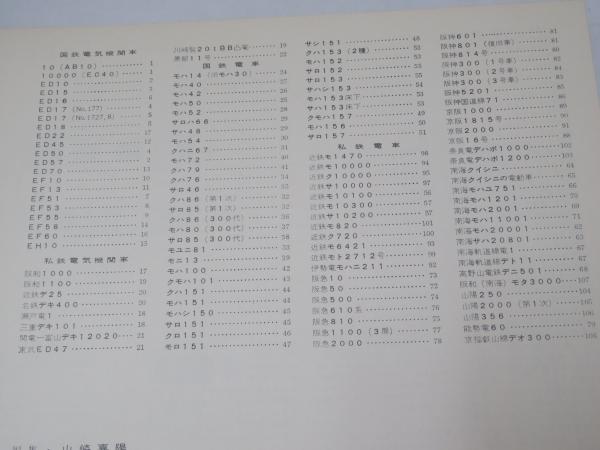 国鉄電気機関車
10 (AB10) 1
10000 (EC40) 1
ED10 2
ED15 3
ED16 6
ED17 (No.177) 4
ED17 (No.1727,8) 5
ED18 8
ED22 17
ED45 12
ED50 4
ED57 2
ED70 13
EF10 7
EF13 11
EF51 7
EF53 8
EF55 9
EF58 14
EF60 16
EH10 15
私鉄電気機関車
阪和1000 17
阪和1100 19
近鉄デ25 20
名鉄デキ400 20
瀬戸電1 18
三重デキ101 18
関電ー富山デキ12020 21
東武ED47 21
川崎製20tBB凸電 19
黒部11号 22
国鉄電車
モハ14 (旧モハ30) 24
モハ40 27
モハ42 26
モハ50 25
モハ52 28
サロハ66 29
サハ48 29
モハ54 30
クハニ67 31
モハ72 40
クハ79 41
クハ76 34
サロ46 32
クハ86 (第1次) 36
クハ86 (300代) 37
モハ80 (300代) 37
サロ85 (第1次) 32
サロ85 (300代) 38
モユニ81 33
モニ13 39
モハ100 42
クモハ101 43
クハ151 44
モハ151 44
モハシ150 45
サロ151 46
クロ151 46
モロ151 47
サシ151 48
クハ153 (2種) 52
モハ152 53
サロ152 54
サロ153 55
サハシ153 54
モハ153床下 53
サハ153床下 53
クモハ157 49
モハ156 50
サロ157 51
私鉄電車
近鉄モ1470 98
近鉄モ10000 94
近鉄ク10000 95
近鉄サ10000 97
近鉄モ10100 96
近鉄モ10300 97
近鉄サ10200 97
近鉄モ820 91
近鉄ク720 100
近鉄モ6421 93
近鉄モト2712号 90
伊勢電モハニ211 88
阪急10 73
阪急50 72
阪急500 74
阪急610系 76
阪急810 75
阪急1100 (3扉) 77
阪急2000 78
阪神601 81
阪神801 (復旧車) 81
阪神814号
阪神300 (1号車)
阪神300 (2号車) 84
阪神300 (3号車) 83
阪神5201
阪神国道線71
京阪1000
京阪1815号
京阪2000
京阪16号
奈良電デハボ1000 102
奈良電デハボ1200 103
南海クイシニ 64
南海クイシニの電動車
南海モハユ751
南海モハ1201
南海モハ2001
南海モハ11001 71
南海モハ20001
南海サハ20801
南海軌道線電1
南海軌道線デト11
高野山電鉄デニ501
阪和 (南海) モタ3000
山陽250 104
山陽2000 (第1次) 105
山陽356 106
能勢電60
京福叡山線デオ300 108
編集・山崎喜陽